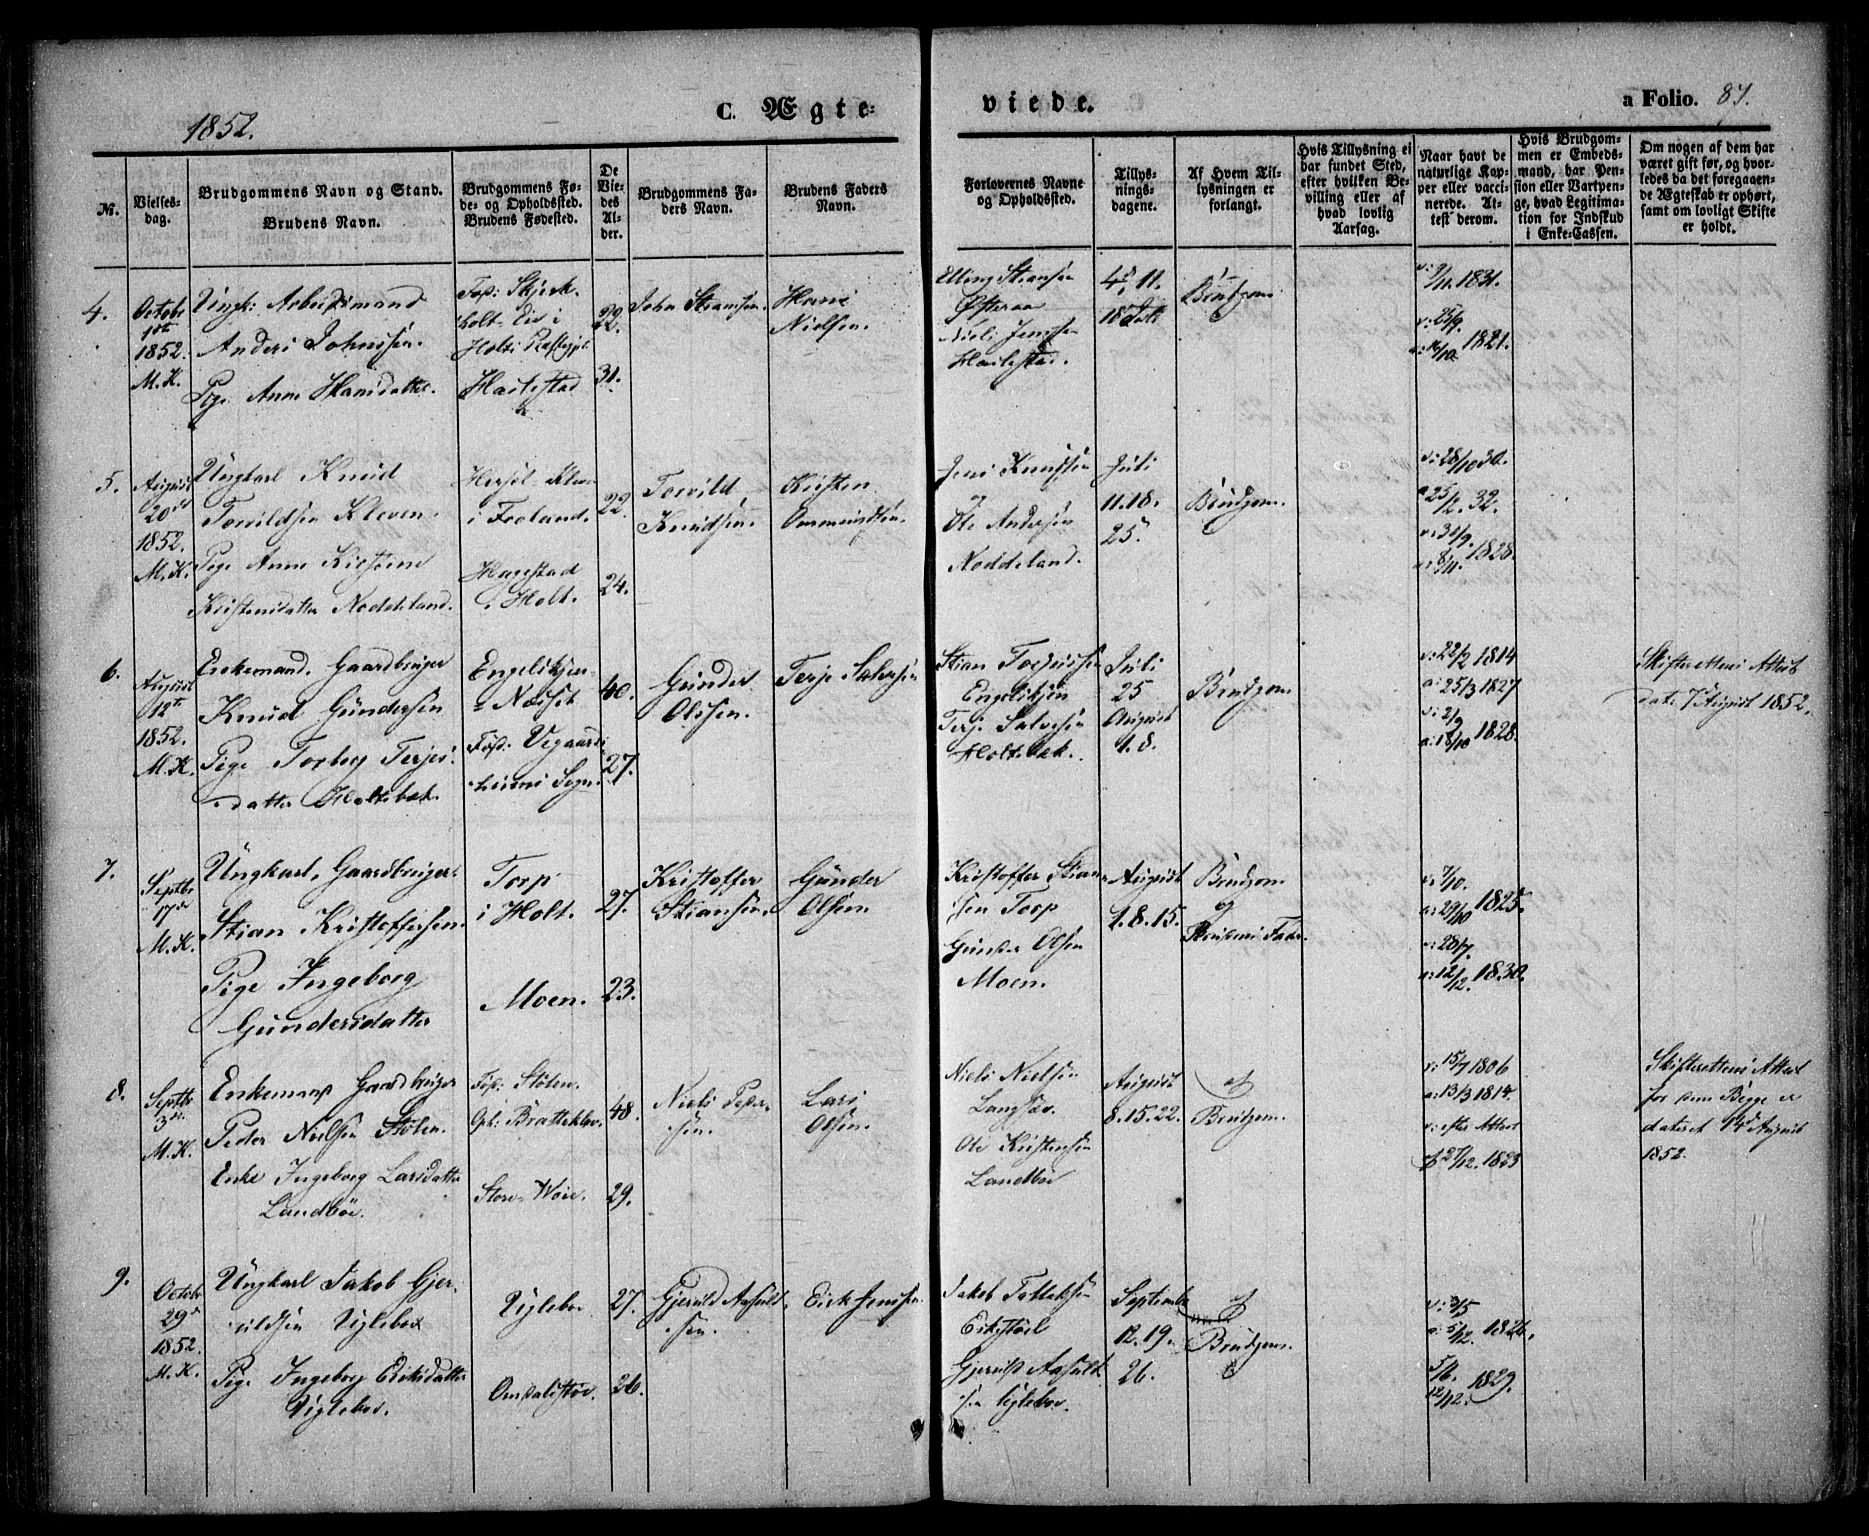 1852.
C. Ægte-
viede.
a Folio. 87.
№.
Vielses-
dag.
Brudgommens Navn og Stand.
Brudens Navn.
Brudgommens Fø-
de- og Opholdssted.
Brudens Fødested.
De
Vie-
des
Al-
der.
Brudgommens Fa-
ders Navn.
Brudens Faders
Navn.
Forlovernes Navne
og Opholdssted.
Tillys-
nings-
dagene.
Af Hvem Til-
lysningen er
forlangt.
Hvis Tillysning ei
har fundet Sted,
efter hvilken Be-
villing eller af
hvad lovlig
Aarsag.
Naar havt de
naturlige Kop-
per eller vacci-
nerede. At-
test derom.
Hvis Brudgom-
men er Embeds-
mand, har Pen-
sion eller Vartpen-
ge, hvad Legitima-
tion for Indskud
i Enke-Cassen.
Om nogen af dem har
været gift før, og hvor-
ledes da det foregaaen-
de Ægteskab er ophørt,
samt om lovligt Skifte
er holdt.
4.
October
1ste
1852.
M. K.
Ungk: Arbeidsmand
Anders Johnsen.
Pige Anne Hansdatter.
Hartestad
22.
31.
John Stiansen.
Hans
Nielsen.
Elling Stiansen
Østeraa
Niels Jenssen
Hartestad.
4de 11.
18
Brudgom
v: 9/11. 1831.
v: 25/9.
a: 16/10. 1821.
5.
August
20de
1852.
M. K.
Ungkarl Knud
Torvildsen Kleven.
Pige Anne Kirstine
Kristensdatter Noddeland.
i Froland.
Hagestad
i Holt.
22.
24.
Torvild
Knudsen.
Kristen
Ommundsen.
Jens Knudsen
Ole Andersen
Noddeland.
Juli
11. 18.
25.
Brudgom.
v: 28/10 30.
a 25/2. 32.
a: 8/11. 1828.
6.
August
12te
1852.
M. K.
Enkemand. Gaardbruger
Knud Gundersen
Pige Torbor Terjes-
datter Holtebek.
Fød: Vegaards-
heiens Sogn.
40.
27.
Gunder
Olssen.
Terje Salvesen
Stian Torjussen
Terje Salvesen
Holtebek.
Juli
25
August
1. 8.
Brudgom
v: 22/2 1814
a: 25/3 1827
v: 2/9
a: 18/10 1828.
Skifterettens Attest
dat: 7 August 1852.
7.
Septbr
17de
M. K.
Ungkarl, Gaardbruger
Stian Kristoffersen.
Pige Ingeborg
Gundersdatter
Torp
i Holt.
Moen.
27.
23.
Kristoffer
Stiansen.
Gunder
Olsen.
Kristoffer Stian-
sen Torp
Gunder Olsen
Moen.
August
1. 8. 15.
Brudgom
og
Brudens Fader.
v: 7/10.
a: 29/10 1825.
v: 28/7.
a: 12/12. 1830.
8.
Septbr
3de
M. K.
Enkemand Gaardbruger
Peder Nielsen Stølen.
Enke Ingeborg Larsdatter
Landbøe.
Fød: Stølen.
48.
29.
Niels Peder-
sen.
Lars
Olsen.
Niels Nielsen
Langsæv.
Ole Kristensen
Landbøe
August
8. 15. 22.
af
Brudgom.
v: 15/7 1806
a: 13/3 1814.
v: efter Attest
af 27/12. 1823
Skifterettens Attest
for dem Begge er
dateret 14 August
1852.
9.
October
29de
1852.
M. K.
Ungkarl Jakob Gjer-
uldsen Ugleboe
Pige Ingeborg Eriksdatter
Ugleboe.
Uglebo
27.
26.
Gjeruld Aasuld-
sen.
Erik Jenssen.
Jakob Tellefsen
Gjeruld Aasuld-
sen Uglebo.
September
12. 19.
26.
af
Brudgom.
v: 3/5
a: 5/12. 1826.
5/6.
12/12. 1829.